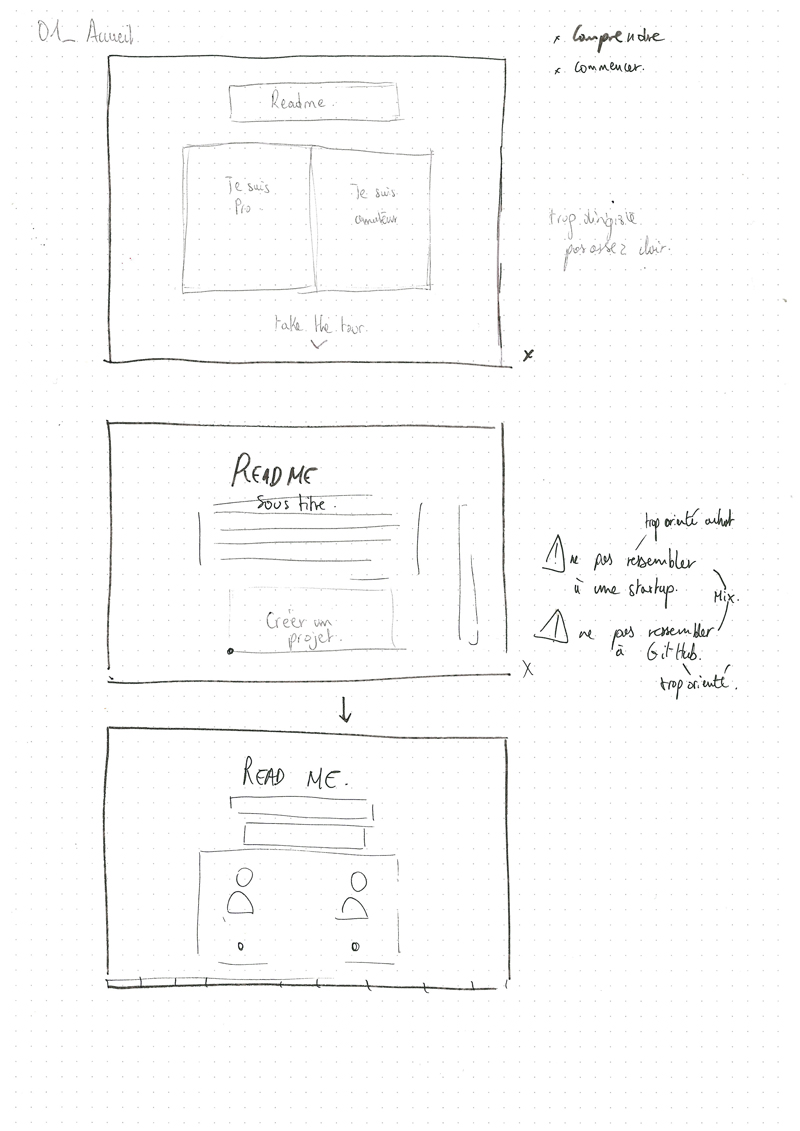 01_ Accueil
x Comprendre
x commencer.
Readme.
Je suis
Pro.
Je suis
amateur
trop dirigiste
pas assez clair.
take the tour.
x
READ ME
Sous titre.
Créer un
projet.
trop orienté achat
! ne pas ressembler
à une startup.
Mix.
! ne pas ressembler
à GitHub.
trop orienté.
X
READ ME.